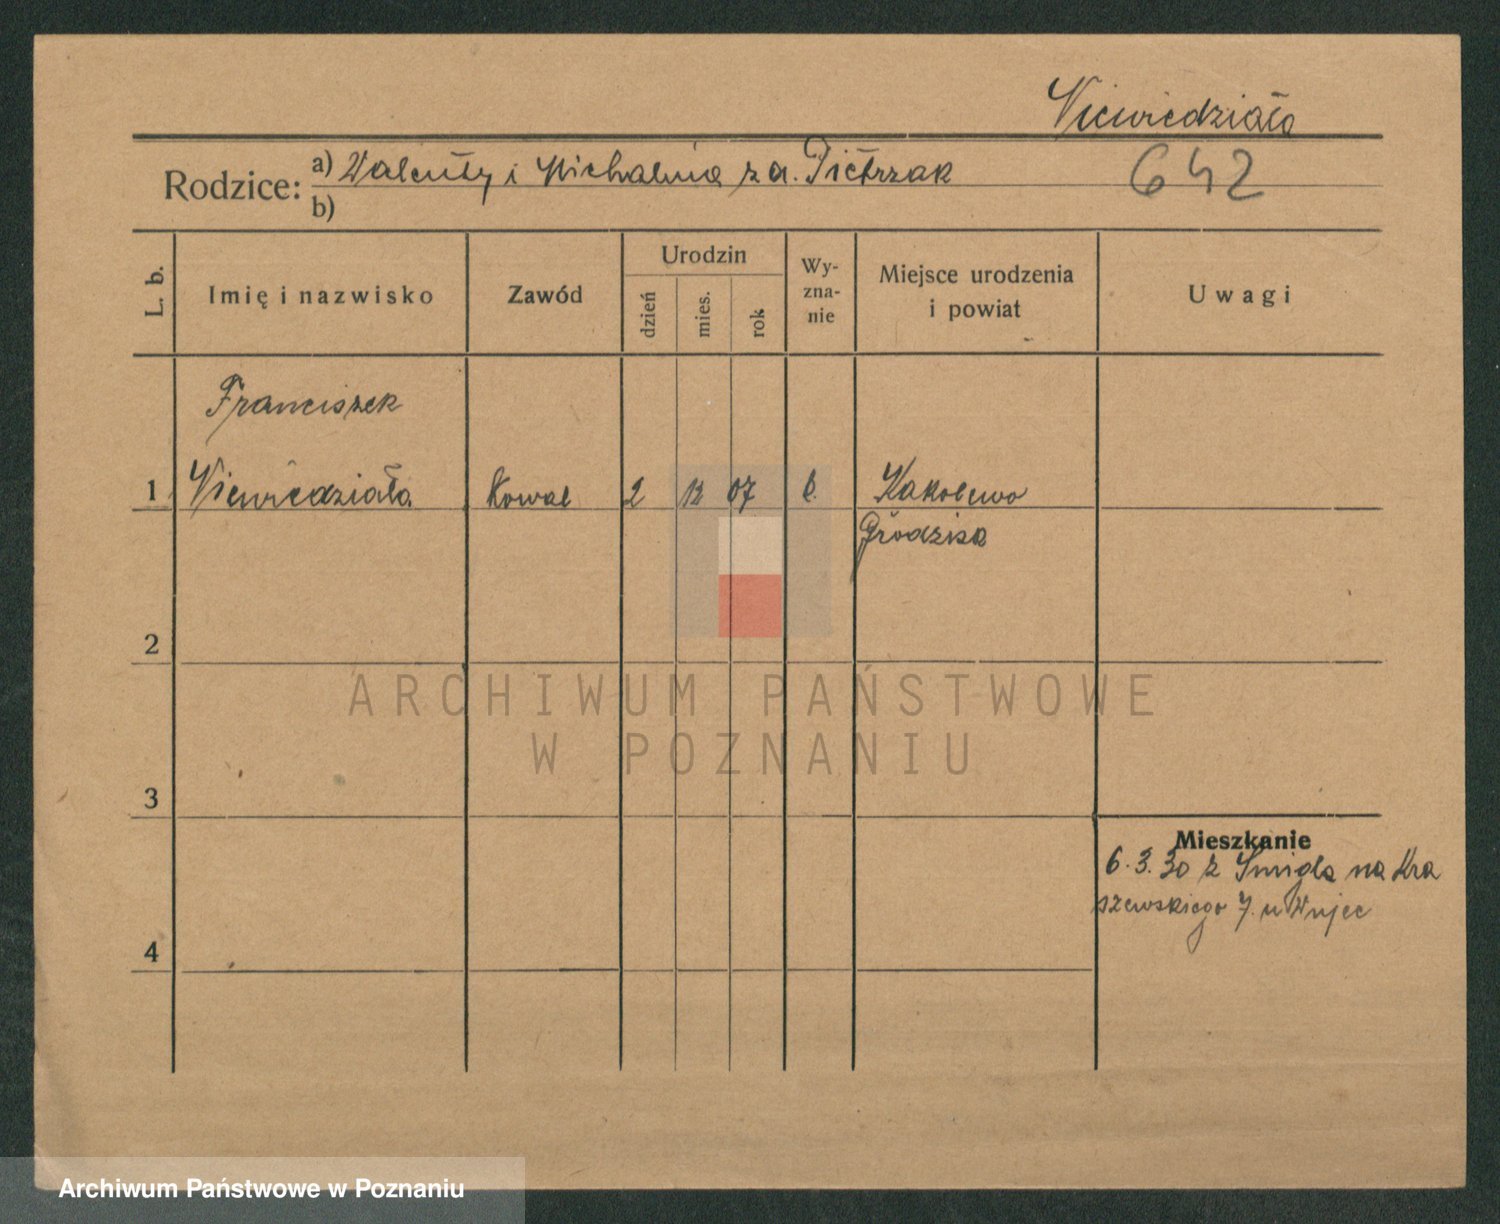 Niewiedziała
Rodzice: a) Walenty i Michalina z d. Pietrzak
642
b)
L. b.
Imię i nazwisko
Zawód
Urodzin
dzień
mies.
rok
Wy-
zna-
nie
Miejsce urodzenia
i powiat
Uwagi
Franciszek
1 Niewiedziała kowal 2 12 07 k. Kąkolewo
Grodzisk
2
ARCHIWUM PAŃSTWOWE
W POZNANIU
3
Mieszkanie
6.3.30 z Śmigla na Kra
szewskiego 7. u Wujec
4
Archiwum Państwowe w Poznaniu